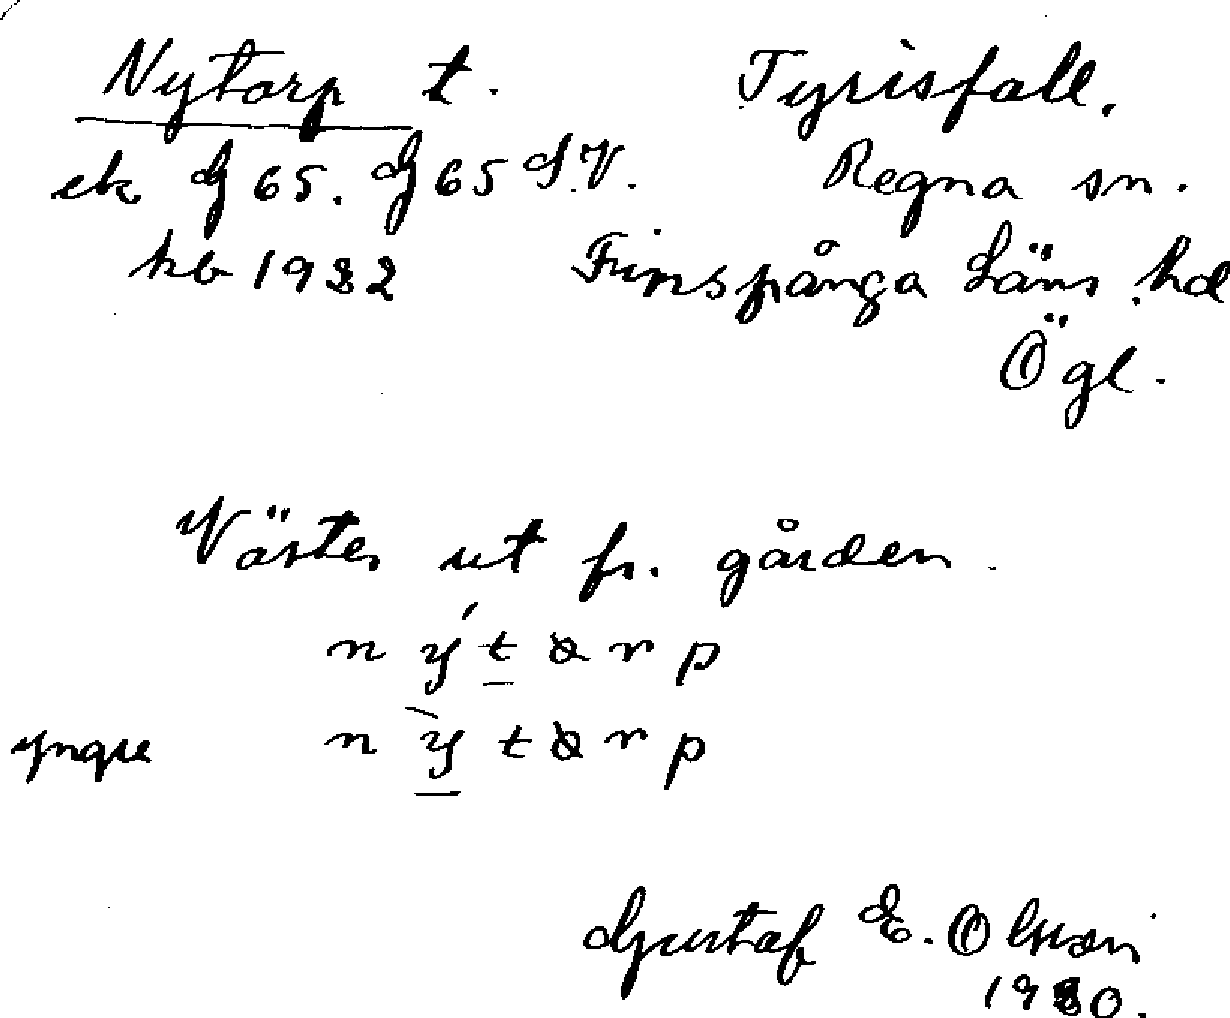 Nytorp t. Tyrisfall.
ek G 65. G 65 S.V. Regna sn.
hb 1932 Finspånga Läns hd
Ögl.
Väster ut fr. gården.
nýtorp
yngre nỳtorp
Gustaf E. Olsson
1930.